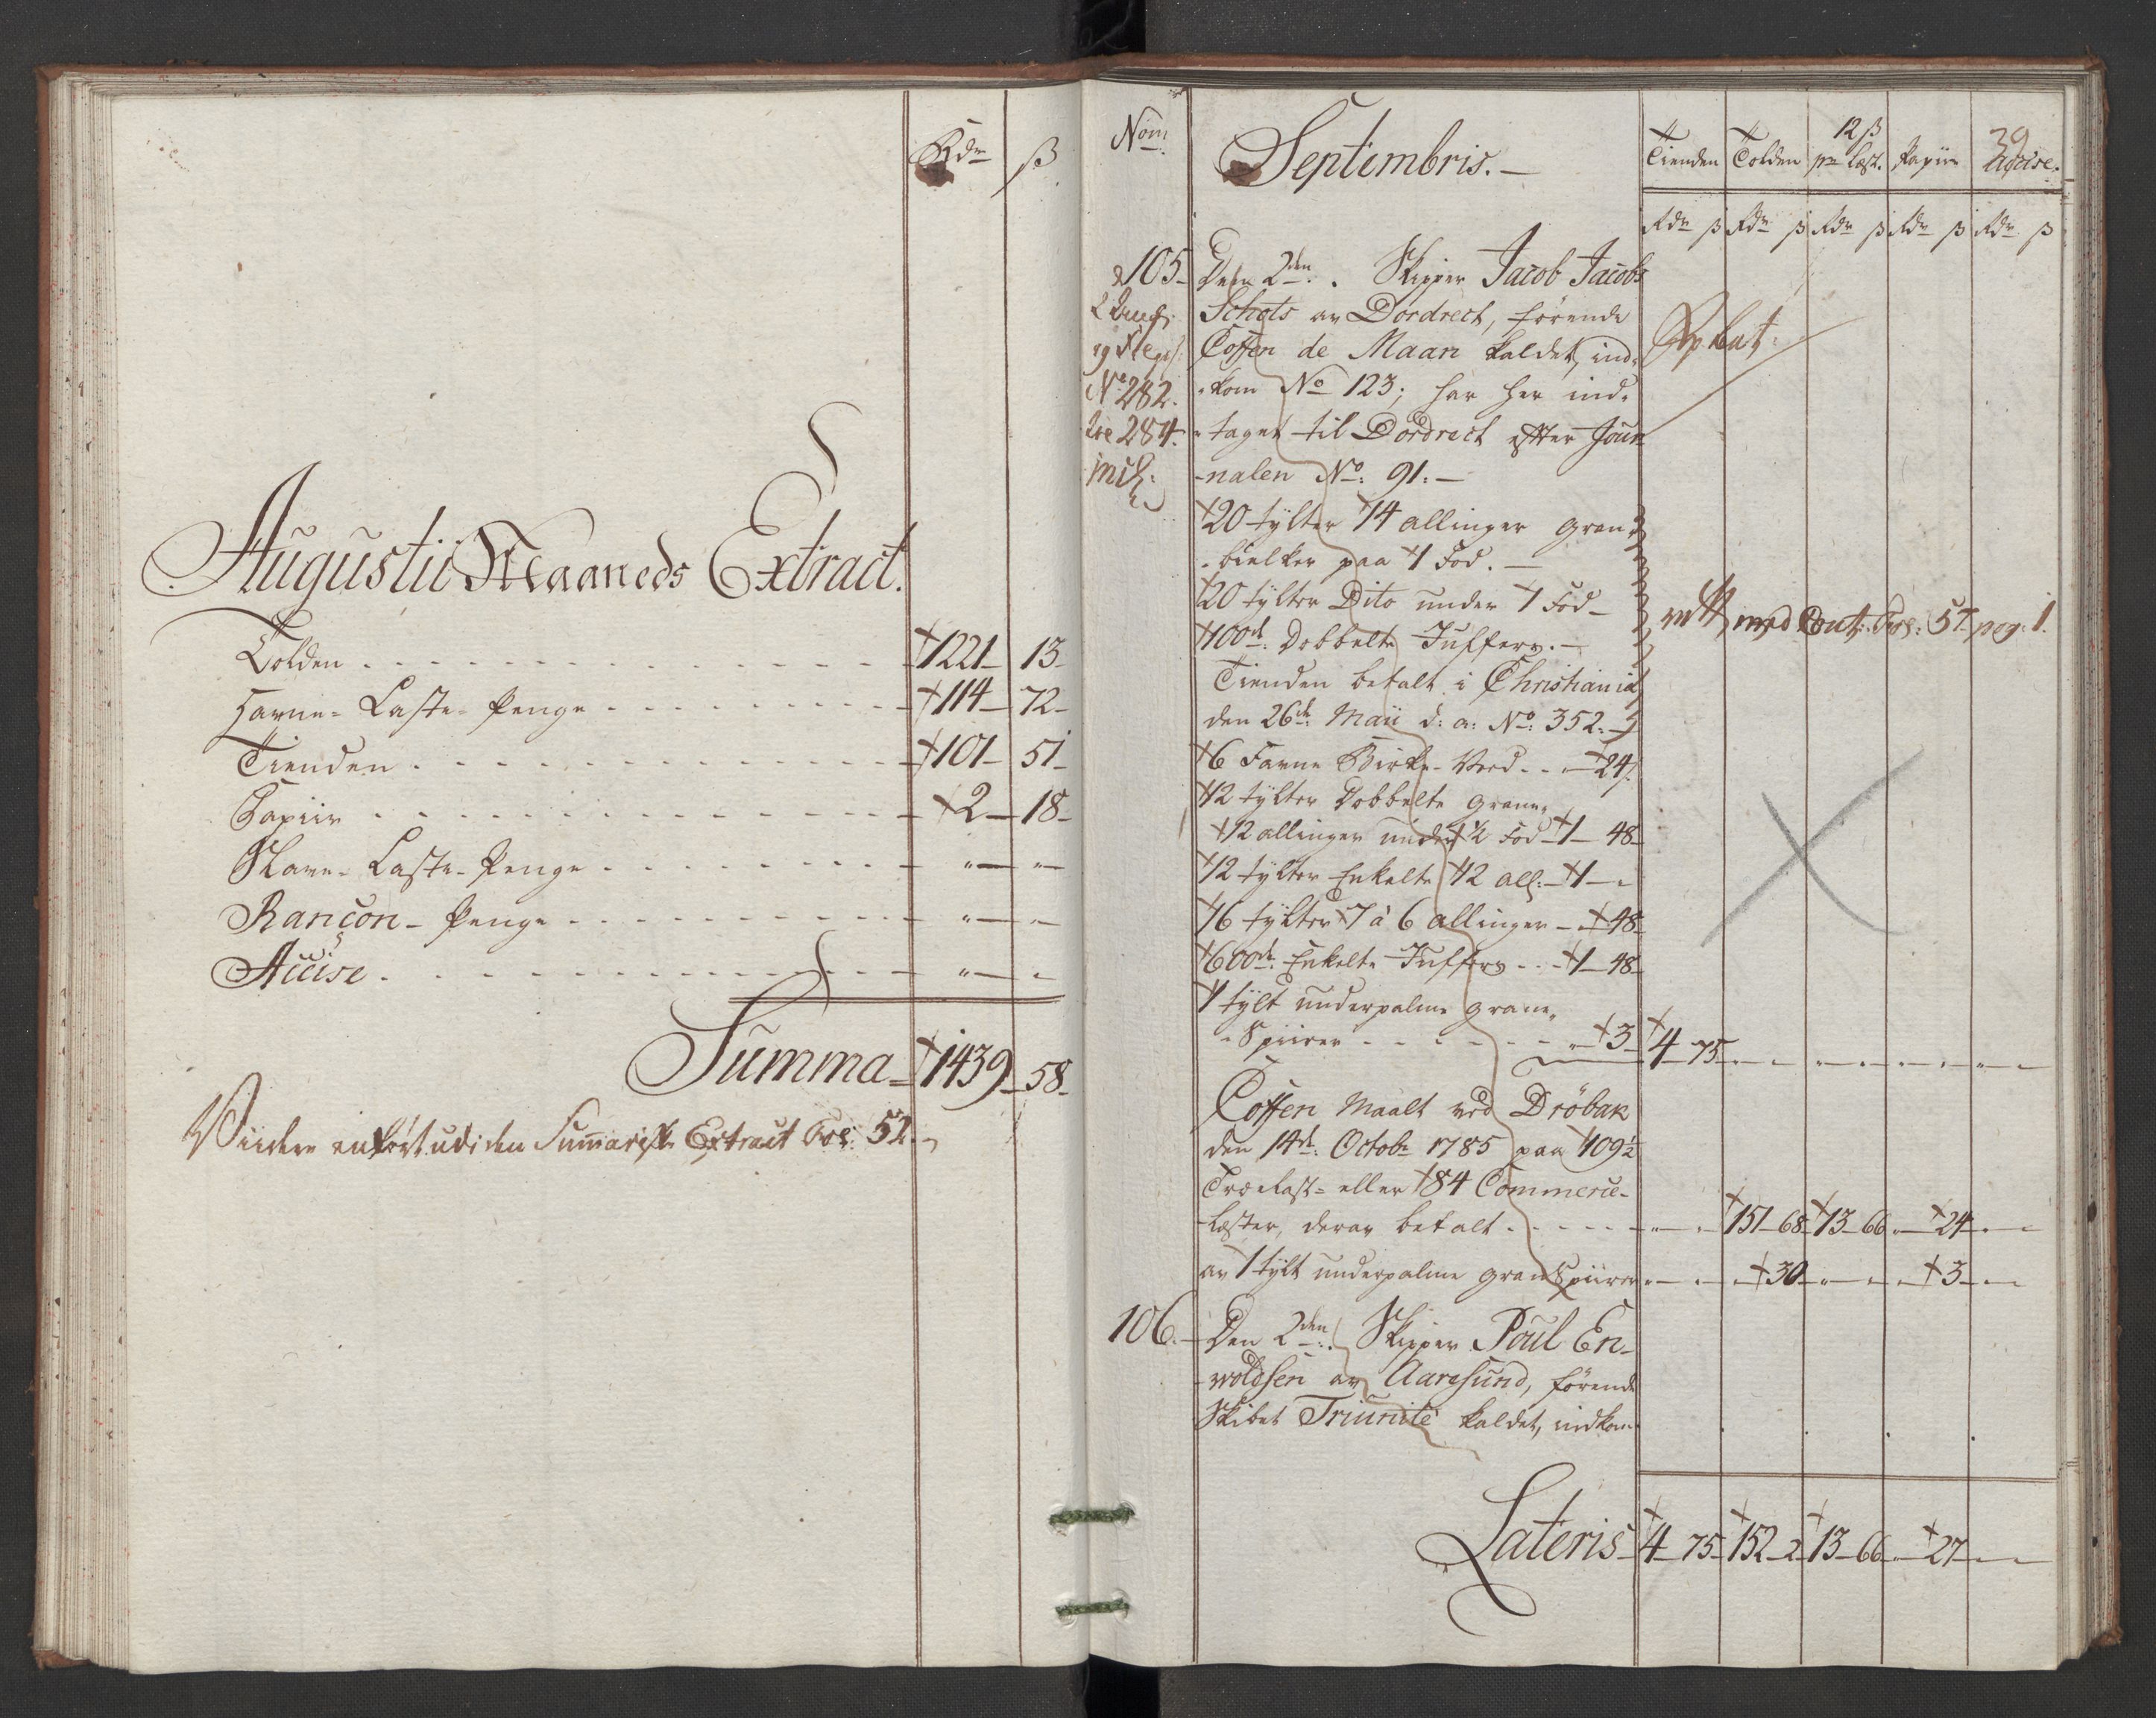 Rdr ß
Augustii Maaneds Extract.
Tolden 1221 13
Havne-Laste-Penge 114 72
Tienden 101 51
Papiir 2 18
Slave-Laste-Penge " "
Rançon-Penge " "
Accise " "
Summa 1439 58
Viidere anført udi den Summariske Extract Fol: 52.
Nom
Septembris.
Tienden Tolden 12 ß pr Læst. Papiir Accise. 39
Rdr ß Rdr ß Rdr ß Rdr ß Rdr ß
105 Den 2den. Skipper Jacob Jacobs
Schots av Dordrect, førende
Coffen de Maan kaldet, ind-
-kom No 123; har her ind-
-taget til Dordrect efter Jour
-nalen No: 91:
No 282.
284.
20 tylter 14 allinger Gran-
-bielker paa 1 Fod.
20 tylter Dito under 1 Fod
100de Dobbelte Juffers.
Tienden betalt i Christiania
den 26de Maii d: a: No: 352.
med Fol: 57 pag: 1.
6 Favne Birke-Veed 24
12 tylter Dobbelte Grane
12 allinger under 1/2 Fod 1 48
12 tylter Enkelte 12 all: 1 "
16 tylter 7 à 6 allinger 48
600de Enkelte Juffers 1 48
1 tylt underpalme Grane-
-Spiirer 3 4 75
Coffen Maalt ved Drøbak
den 14de Octobr 1785 paa 109½
Trælast- eller 84 Commerce-
-læster, derav betalt 151 68 13 66 24
av 1 tylt underpalme Gran Spiirer 30 3
106. Den 2den. Skipper Poul En-
-woldsen av Aarøsund, førende
Skibet Triunite kaldet, indkom
Lateris 4 75 152 2 13 66 27